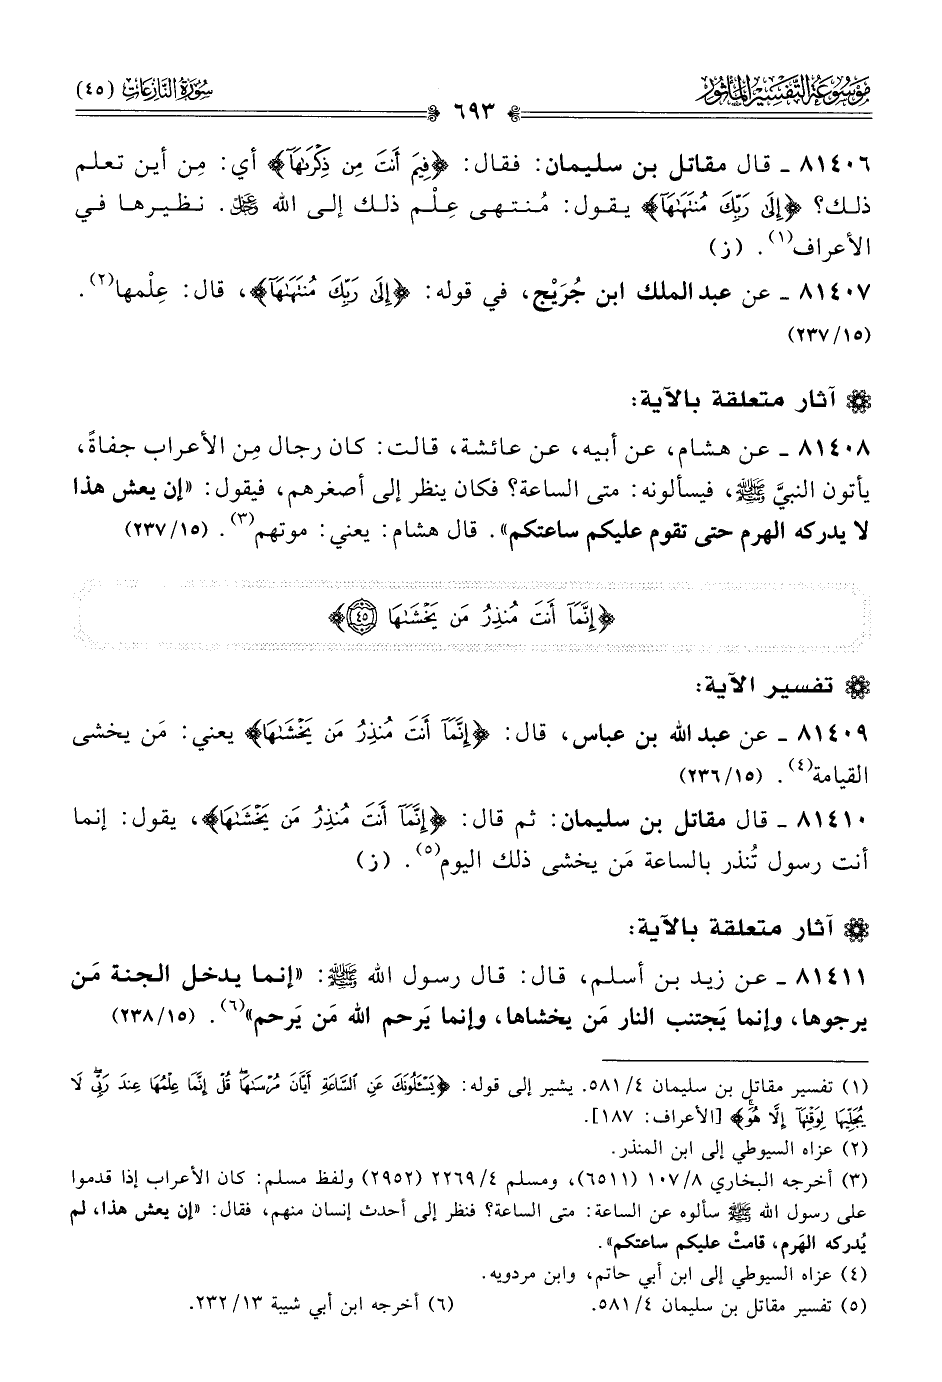 موسوعة التفسير المأثور
سورة النازعات (٤٥)
٦٩٣
٨١٤٠٦ ـ قال مقاتل بن سليمان: فقال: ﴿فِيمَ أَنتَ مِن ذِكْرَىٰهَآ﴾ أي: مِن أين تعلم
ذلك؟ ﴿إِلَىٰ رَبِّكَ مُنتَهَىٰهَآ﴾ يقول: مُنتهى عِلْم ذلك إلى الله ﷻ. نظيرها في
الأعراف(١). (ز)
٨١٤٠٧ ـ عن عبد الملك ابن جُرَيْج، في قوله: ﴿إِلَىٰ رَبِّكَ مُنتَهَىٰهَآ﴾، قال: عِلْمها(٢).
(١٥/٢٣٧)
آثار متعلقة بالآية:
٨١٤٠٨ ـ عن هشام، عن أبيه، عن عائشة، قالت: كان رجال مِن الأعراب جفاةً،
يأتون النبيَّ ﷺ، فيسألونه: متى الساعة؟ فكان ينظر إلى أصغرهم، فيقول: «إن يعش هذا
لا يدركه الهرم حتى تقوم عليكم ساعتكم». قال هشام: يعني: موتهم(٣). (١٥/٢٣٧)
﴿إِنَّمَآ أَنتَ مُنذِرُ مَن يَخْشَىٰهَا ٤٥﴾
تفسير الآية:
٨١٤٠٩ ـ عن عبد الله بن عباس، قال: ﴿إِنَّمَآ أَنتَ مُنذِرُ مَن يَخْشَىٰهَا﴾ يعني: مَن يخشى
القيامة(٤). (١٥/٢٣٦)
٨١٤١٠ ـ قال مقاتل بن سليمان: ثم قال: ﴿إِنَّمَآ أَنتَ مُنذِرُ مَن يَخْشَىٰهَا﴾، يقول: إنما
أنت رسول تُنذر بالساعة مَن يخشى ذلك اليوم(٥). (ز)
آثار متعلقة بالآية:
٨١٤١١ ـ عن زيد بن أسلم، قال: قال رسول الله ﷺ: «إنما يدخل الجنة مَن
يرجوها، وإنما يَجتنب النار مَن يخشاها، وإنما يَرحم الله مَن يَرحم»(٦). (١٥/٢٣٨)
(١) تفسير مقاتل بن سليمان ٤/٥٨١. يشير إلى قوله: ﴿يَسْـَٔلُونَكَ عَنِ ٱلسَّاعَةِ أَيَّانَ مُرْسَىٰهَا ۖ قُلْ إِنَّمَا عِلْمُهَا عِندَ رَبِّى ۖ لَا
يُجَلِّيهَا لِوَقْتِهَآ إِلَّا هُوَ ۚ﴾ [الأعراف: ١٨٧].
(٢) عزاه السيوطي إلى ابن المنذر.
(٣) أخرجه البخاري ٨/١٠٧ (٦٥١١)، ومسلم ٤/٢٢٦٩ (٢٩٥٢) ولفظ مسلم: كان الأعراب إذا قدموا
على رسول الله ﷺ سألوه عن الساعة: متى الساعة؟ فنظر إلى أحدث إنسان منهم، فقال: «إن يعش هذا، لم
يُدركه الهَرم، قامتْ عليكم ساعتكم».
(٤) عزاه السيوطي إلى ابن أبي حاتم، وابن مردويه.
(٥) تفسير مقاتل بن سليمان ٤/٥٨١.
(٦) أخرجه ابن أبي شيبة ١٣/٢٣٢.